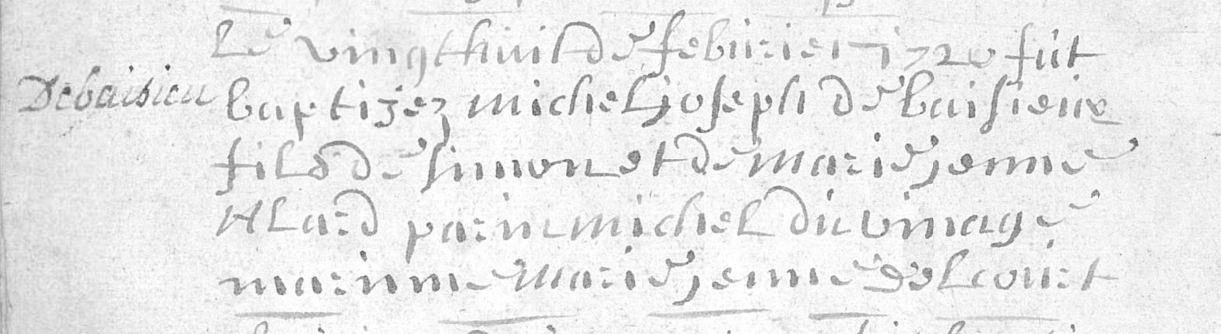 Le vingthuit de feburier 1720 fût
Debaisieu
baptizez michel joseph de baisieux
fils de simon et de marie jenne
Alard parin michel du vinage
marinne marie jenne delcourt